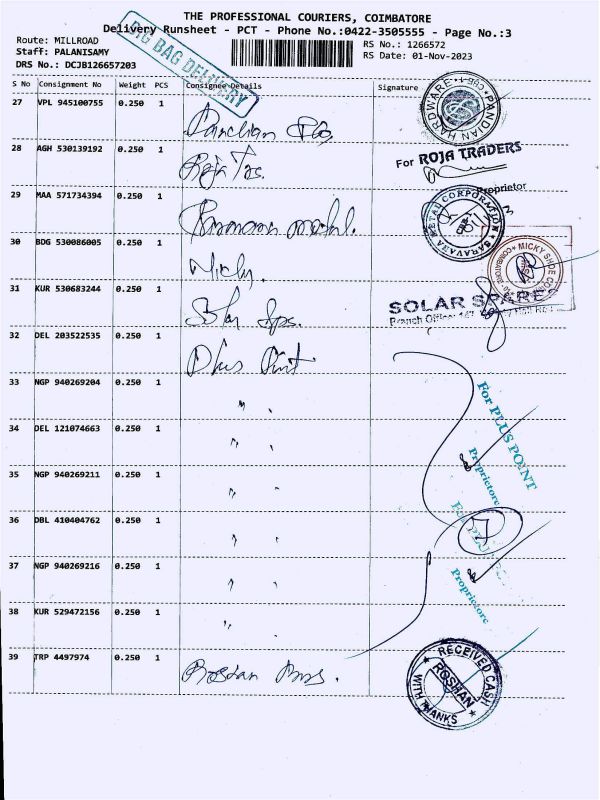 THE PROFESSIONAL COURIERS, COIMBATORE
Delivery Runsheet - PCT - Phone No.:0422-3505555 - Page No.:3
Route: MILLROAD
Staff: PALANISAMY
DRS No.: DCJB126657203
RS No.: 1266572
RS Date: 01-Nov-2023
BIG BAG DELIVERY
S No Consignment No Weight PCS Consignee Details Signature
27 VPL 945100755 0.250 1
PANDIAN HARDWARE
28 AGH 530139192 0.250 1 Roja Trs.
For ROJA TRADERS
Proprietor
29 MAA 571734394 0.250 1
CORPORATION
30 BDG 530086005 0.250 1 Micky.
31 KUR 530683244 0.250 1 Solar Sps.
SOLAR SPARES
Branch Office:
32 DEL 203522535 0.250 1 Plus Point
33 NGP 940269204 0.250 1 " "
For PLUS POINT
Proprietore
34 DEL 121074663 0.250 1 " "
35 NGP 940269211 0.250 1 " "
36 DBL 410404762 0.250 1 " "
7
37 NGP 940269216 0.250 1 " "
Proprietore
38 KUR 529472156 0.250 1 " "
39 TRP 4497974 0.250 1 Roshan Bros.
RECEIVED CASH
ROSHAN
WITH THANKS